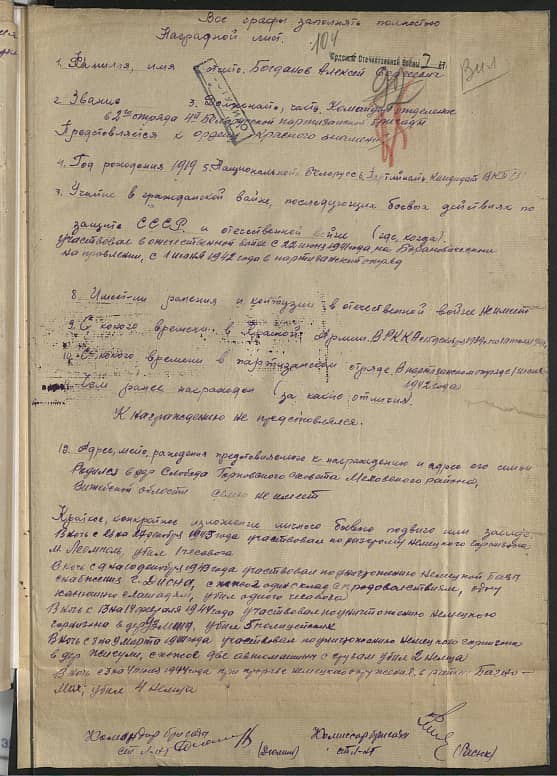 Все графы заполнять полностью
Наградной лист.
104
Орденом Отечественной Войны
1. Фамилия, имя отчес. Богданов Алексей
2. Звание 3. Должность, часть, Командир отделения
в 2м отряда 4й Белорусской партизанской бригады
Представляется к ордену Красного знамени
4. Год рождения 1919 5. Национальность белорусс 6. Партийность Кандидат ВКП(б)
7. Участие в гражданской войне, последующих боевых действиях по
защите СССР и отечественной войне (где, когда).
Участвовал в отечественной войне с 22 июня 1941 года, на Барановичском
направлении, с 1 июня 1942 года в партизанский отряд
8. Имеет-ли ранения и контузии в отечественной войне Не имеет
9. С какого времени в Красной Армии. В РККА с
10. С какого времени в партизанском отряде В партизанском отряде с 1 июня
1942 года
Чем ранее награжден (за какие отличия).
К награждению не представлялся.
12. Адрес, место рождения представляемого к награждению и адрес его семьи
Родился в дер Слобода сельсовета Меховского района,
Витебской области семьи не имеет
Краткое, конкретное изложение личного боевого подвига или заслуг
В ночь с на октября 1943 года участвовал по разгрому немецкого гарнизона
м. Леонполь, убил 1 часового
В ночь с на 1943 года участвовал по уничтожению немецкой базы
снабжения г. Дисна, с один склад с продовольствием,
конюшню с лошадями, убил одного часового
В ночь с 13 на 14 1944 года участвовал по уничтожению немецкого
гарнизона в дер, убил 5 полицейских
В ночь с 8 на 9 марта 1944 года участвовал по уничтожению немецкого гарнизона
в дер, с две автомашины с грузом убил 2 немца
В ночь с 3 на 4 1944 года при прорыве немецкого окружения, в район
убил 4 немца
Командир бригады
ст. л-нт
Комиссар бригады
ст. л-нт